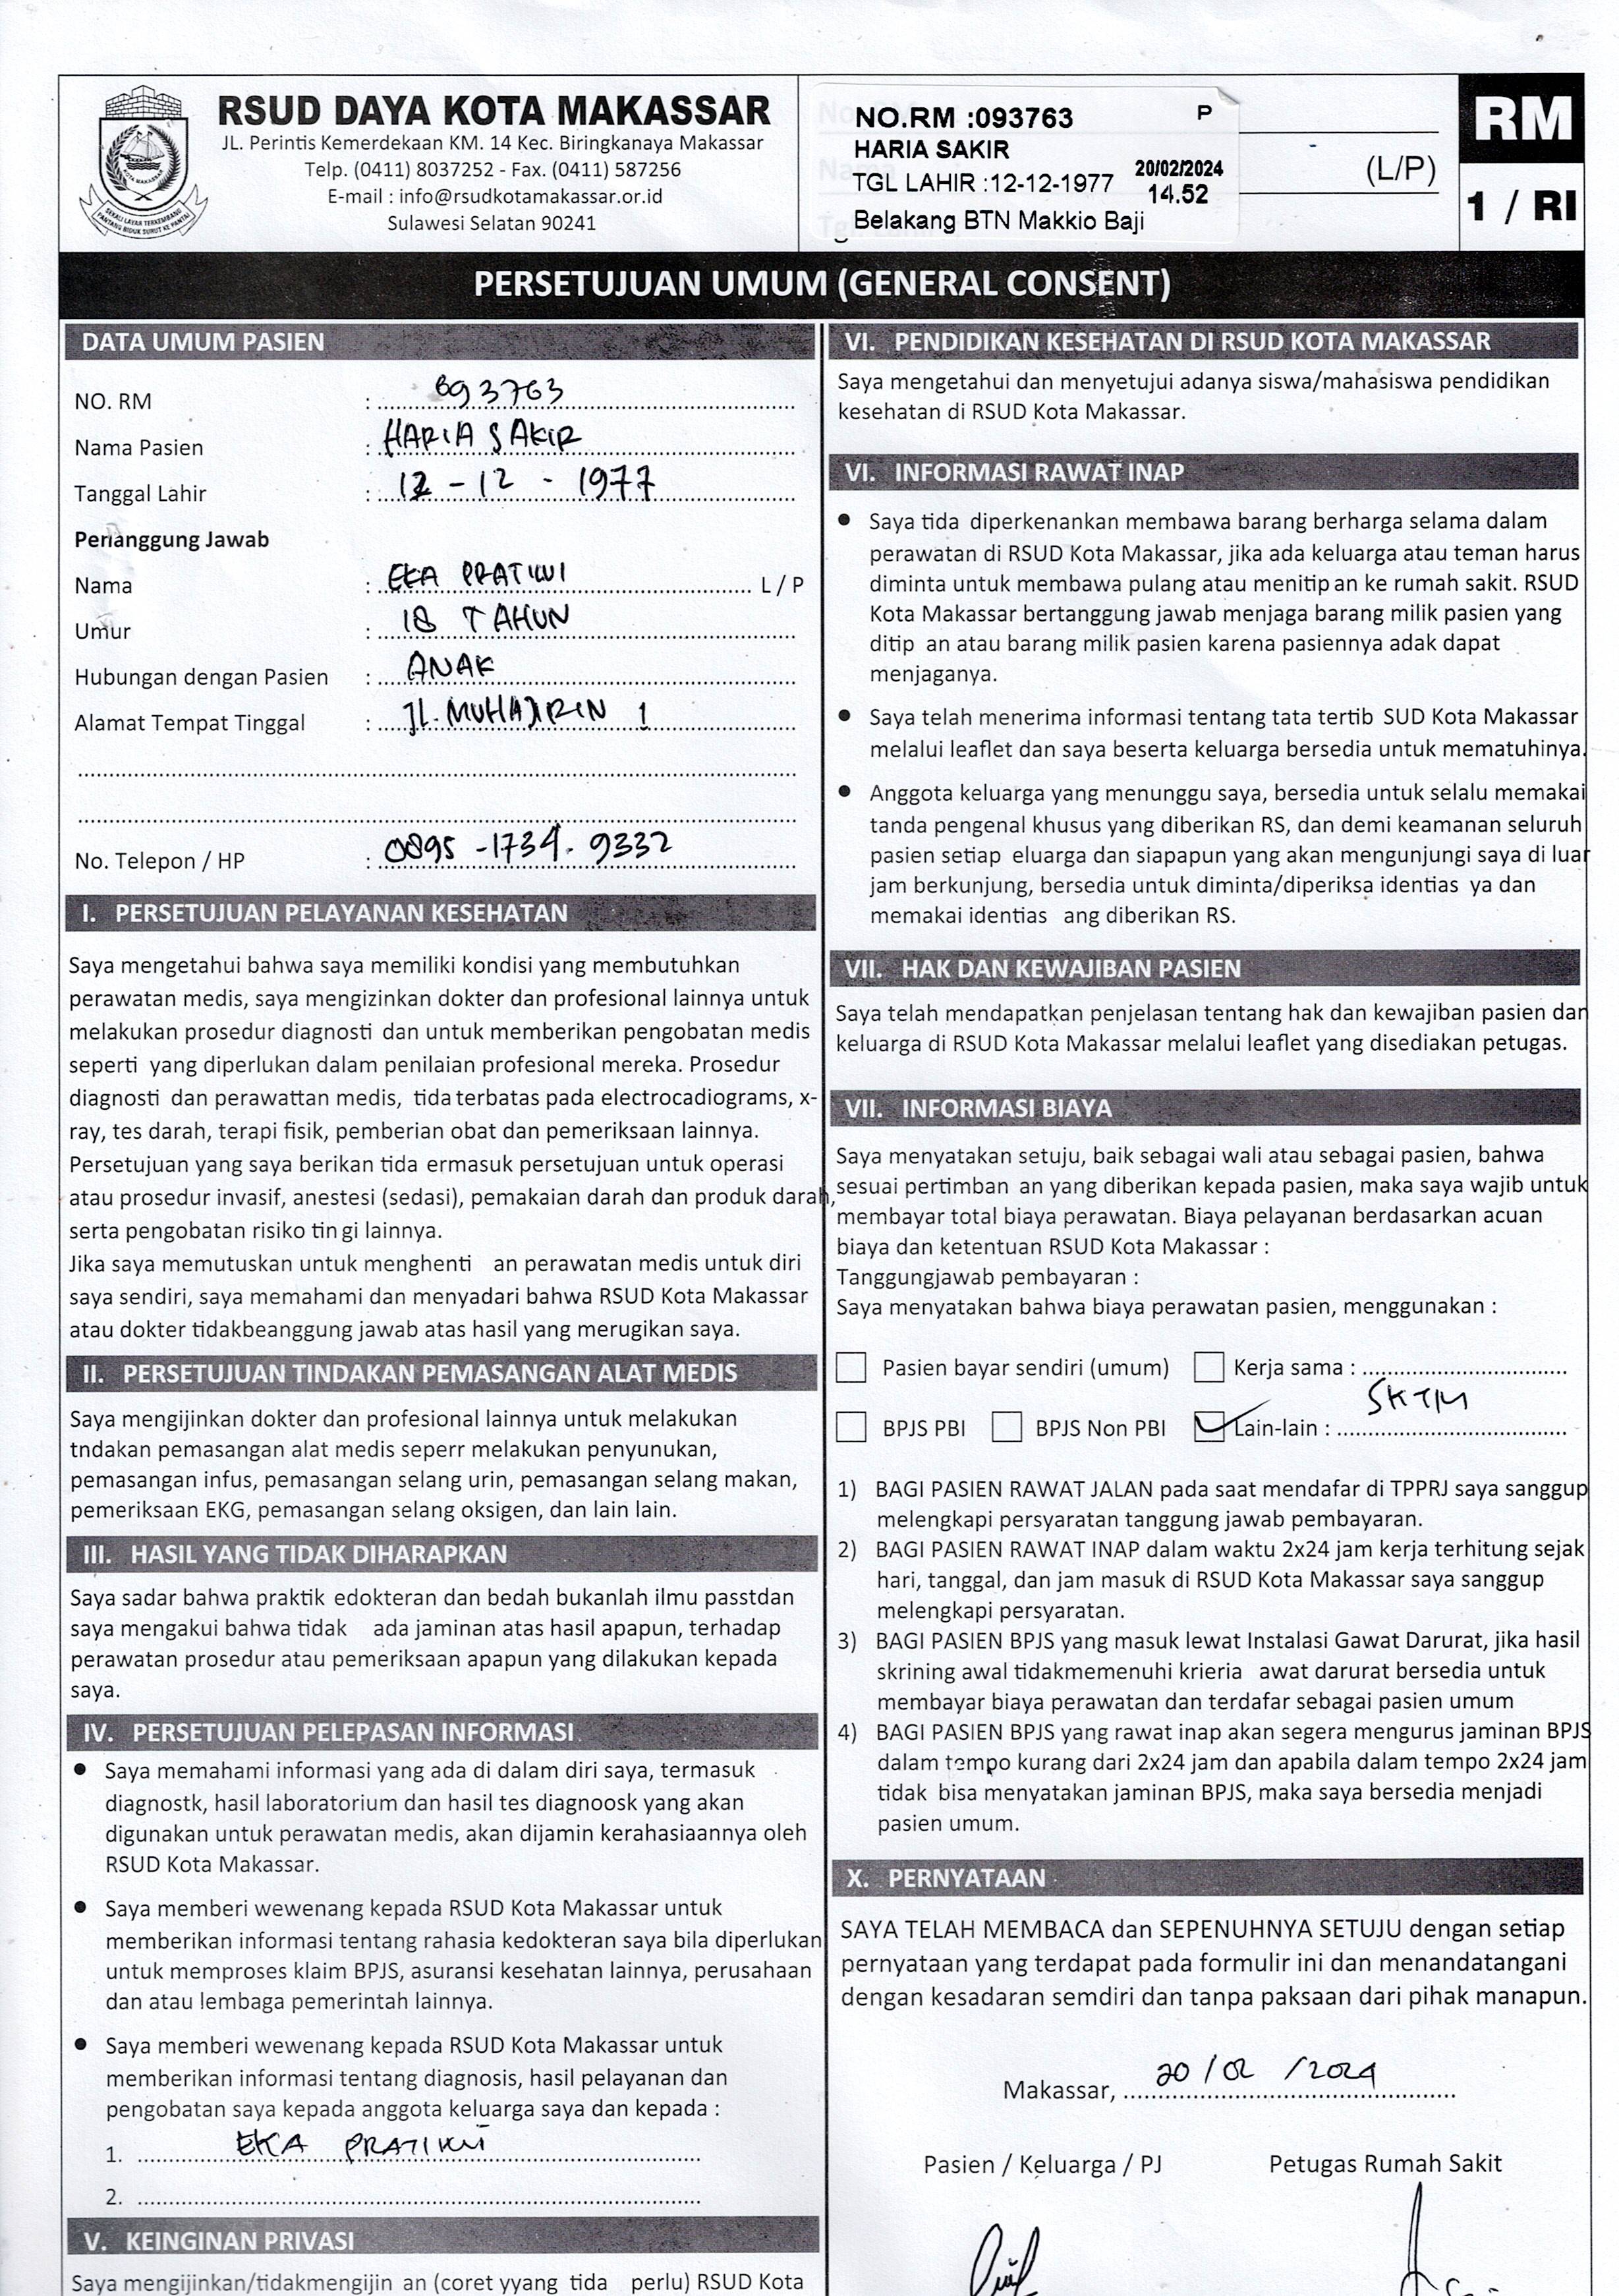 RSUD DAYA KOTA MAKASSAR
JL. Perintis Kemerdekaan KM. 14 Kec. Biringkanaya Makassar
Telp. (0411) 8037252 - Fax. (0411) 587256
E-mail : info@rsudkotamakassar.or.id
Sulawesi Selatan 90241
NO.RM :093763 P
HARIA SAKIR
TGL LAHIR :12-12-1977
20/02/2024
14.52
Belakang BTN Makkio Baji
(L/P)
RM
1 / RI
PERSETUJUAN UMUM (GENERAL CONSENT)
DATA UMUM PASIEN
NO. RM : 093763
Nama Pasien : HARIA SAKIR
Tanggal Lahir : 12 - 12 - 1977
Penanggung Jawab
Nama : EKA PRATIWI L / P
Umur : 18 TAHUN
Hubungan dengan Pasien : ANAK
Alamat Tempat Tinggal : JL. MUHAJIRIN 1
No. Telepon / HP : 0895 -1734. 9332
I. PERSETUJUAN PELAYANAN KESEHATAN
Saya mengetahui bahwa saya memiliki kondisi yang membutuhkan
perawatan medis, saya mengizinkan dokter dan profesional lainnya untuk
melakukan prosedur diagnosti dan untuk memberikan pengobatan medis
seperti yang diperlukan dalam penilaian profesional mereka. Prosedur
diagnosti dan perawattan medis, tida terbatas pada electrocadiograms, x-
ray, tes darah, terapi fisik, pemberian obat dan pemeriksaan lainnya.
Persetujuan yang saya berikan tida ermasuk persetujuan untuk operasi
atau prosedur invasif, anestesi (sedasi), pemakaian darah dan produk darah,
serta pengobatan risiko tin gi lainnya.
Jika saya memutuskan untuk menghenti an perawatan medis untuk diri
saya sendiri, saya memahami dan menyadari bahwa RSUD Kota Makassar
atau dokter tidakbeanggung jawab atas hasil yang merugikan saya.
II. PERSETUJUAN TINDAKAN PEMASANGAN ALAT MEDIS
Saya mengijinkan dokter dan profesional lainnya untuk melakukan
tndakan pemasangan alat medis seperr melakukan penyunukan,
pemasangan infus, pemasangan selang urin, pemasangan selang makan,
pemeriksaan EKG, pemasangan selang oksigen, dan lain lain.
III. HASIL YANG TIDAK DIHARAPKAN
Saya sadar bahwa praktik edokteran dan bedah bukanlah ilmu passtdan
saya mengakui bahwa tidak ada jaminan atas hasil apapun, terhadap
perawatan prosedur atau pemeriksaan apapun yang dilakukan kepada
saya.
IV. PERSETUJUAN PELEPASAN INFORMASI
• Saya memahami informasi yang ada di dalam diri saya, termasuk
diagnostk, hasil laboratorium dan hasil tes diagnoosk yang akan
digunakan untuk perawatan medis, akan dijamin kerahasiaannya oleh
RSUD Kota Makassar.
• Saya memberi wewenang kepada RSUD Kota Makassar untuk
memberikan informasi tentang rahasia kedokteran saya bila diperlukan
untuk memproses klaim BPJS, asuransi kesehatan lainnya, perusahaan
dan atau lembaga pemerintah lainnya.
• Saya memberi wewenang kepada RSUD Kota Makassar untuk
memberikan informasi tentang diagnosis, hasil pelayanan dan
pengobatan saya kepada anggota keluarga saya dan kepada :
1. EKA PRATIWI
2.
V. KEINGINAN PRIVASI
Saya mengijinkan/tidakmengijin an (coret yyang tida perlu) RSUD Kota
VI. PENDIDIKAN KESEHATAN DI RSUD KOTA MAKASSAR
Saya mengetahui dan menyetujui adanya siswa/mahasiswa pendidikan
kesehatan di RSUD Kota Makassar.
VI. INFORMASI RAWAT INAP
• Saya tida diperkenankan membawa barang berharga selama dalam
perawatan di RSUD Kota Makassar, jika ada keluarga atau teman harus
diminta untuk membawa pulang atau menitip an ke rumah sakit. RSUD
Kota Makassar bertanggung jawab menjaga barang milik pasien yang
ditip an atau barang milik pasien karena pasiennya adak dapat
menjaganya.
• Saya telah menerima informasi tentang tata tertib SUD Kota Makassar
melalui leaflet dan saya beserta keluarga bersedia untuk mematuhinya.
• Anggota keluarga yang menunggu saya, bersedia untuk selalu memakai
tanda pengenal khusus yang diberikan RS, dan demi keamanan seluruh
pasien setiap eluarga dan siapapun yang akan mengunjungi saya di luar
jam berkunjung, bersedia untuk diminta/diperiksa identias ya dan
memakai identias ang diberikan RS.
VII. HAK DAN KEWAJIBAN PASIEN
Saya telah mendapatkan penjelasan tentang hak dan kewajiban pasien dan
keluarga di RSUD Kota Makassar melalui leaflet yang disediakan petugas.
VII. INFORMASI BIAYA
Saya menyatakan setuju, baik sebagai wali atau sebagai pasien, bahwa
sesuai pertimban an yang diberikan kepada pasien, maka saya wajib untuk
membayar total biaya perawatan. Biaya pelayanan berdasarkan acuan
biaya dan ketentuan RSUD Kota Makassar :
Tanggungjawab pembayaran :
Saya menyatakan bahwa biaya perawatan pasien, menggunakan :
Pasien bayar sendiri (umum) Kerja sama :
BPJS PBI BPJS Non PBI Lain-lain : SKTM
1) BAGI PASIEN RAWAT JALAN pada saat mendafar di TPPRJ saya sanggup
melengkapi persyaratan tanggung jawab pembayaran.
2) BAGI PASIEN RAWAT INAP dalam waktu 2x24 jam kerja terhitung sejak
hari, tanggal, dan jam masuk di RSUD Kota Makassar saya sanggup
melengkapi persyaratan.
3) BAGI PASIEN BPJS yang masuk lewat Instalasi Gawat Darurat, jika hasil
skrining awal tidakmemenuhi krieria awat darurat bersedia untuk
membayar biaya perawatan dan terdafar sebagai pasien umum
4) BAGI PASIEN BPJS yang rawat inap akan segera mengurus jaminan BPJS
dalam tempo kurang dari 2x24 jam dan apabila dalam tempo 2x24 jam
tidak bisa menyatakan jaminan BPJS, maka saya bersedia menjadi
pasien umum.
X. PERNYATAAN
SAYA TELAH MEMBACA dan SEPENUHNYA SETUJU dengan setiap
pernyataan yang terdapat pada formulir ini dan menandatangani
dengan kesadaran semdiri dan tanpa paksaan dari pihak manapun.
Makassar, 20 / 02 / 2024
Pasien / Keluarga / PJ Petugas Rumah Sakit